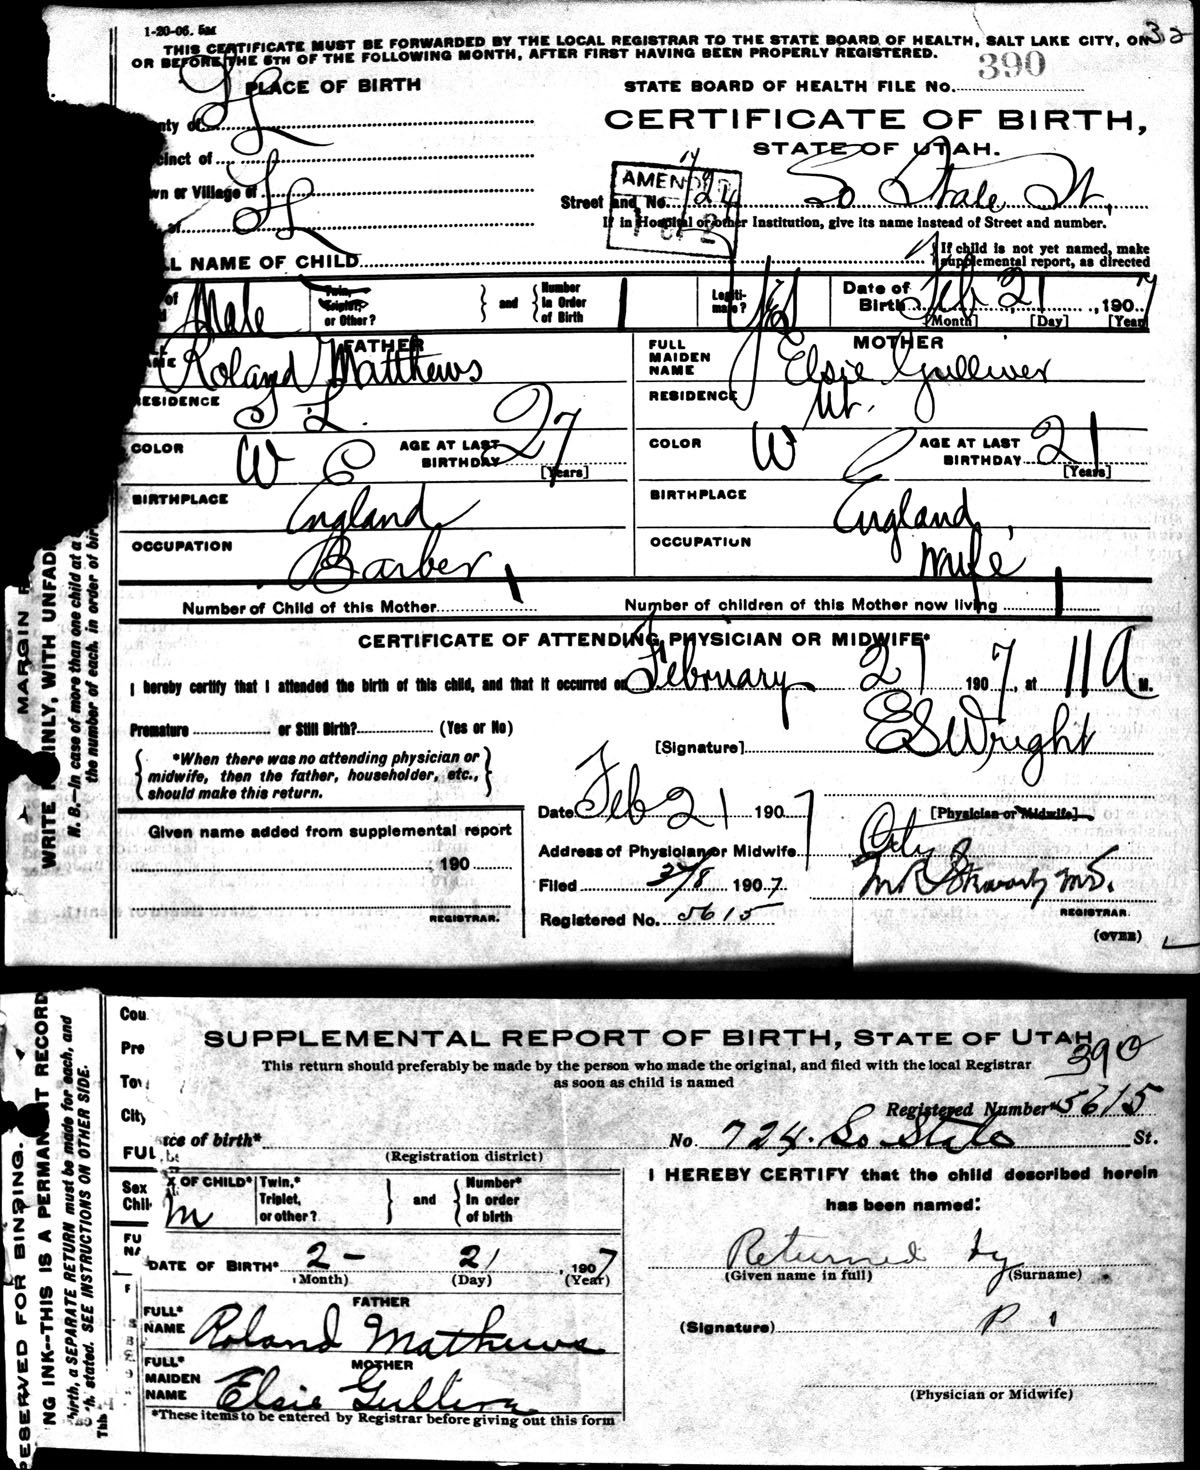 1-20-06. 5M
32
THIS CERTIFICATE MUST BE FORWARDED BY THE LOCAL REGISTRAR TO THE STATE BOARD OF HEALTH, SALT LAKE CITY, ON
OR BEFORE THE 5TH OF THE FOLLOWING MONTH, AFTER FIRST HAVING BEEN PROPERLY REGISTERED.
390
PLACE OF BIRTH
STATE BOARD OF HEALTH FILE NO.
nty of S L
CERTIFICATE OF BIRTH,
cinct of
STATE OF UTAH.
wn or Village of
AMENDED
Street and No. 724 So State St.
of S L
If in Hospital or other Institution, give its name instead of Street and number.
L NAME OF CHILD
If child is not yet named, make
supplemental report, as directed
of Male
Twin,
Triplet,
or Other?
and
Number
in Order
of Birth
1
Legiti-
mate?
Yes
Date of
Birth Feb 21, 1907
[Month] [Day] [Year]
FATHER
NAME Roland Matthews
RESIDENCE S L.
COLOR W
AGE AT LAST
BIRTHDAY 27
[Years]
BIRTHPLACE England
OCCUPATION Barber
MOTHER
FULL
MAIDEN
NAME Elsie Gulliver
RESIDENCE Ut.
COLOR W
AGE AT LAST
BIRTHDAY 21
[Years]
BIRTHPLACE England
OCCUPATION Wife
Number of Child of this Mother 1
Number of children of this Mother now living 1
CERTIFICATE OF ATTENDING PHYSICIAN OR MIDWIFE*
I hereby certify that I attended the birth of this child, and that it occurred on February 21 1907, at 11 A M.
Premature or Still Birth? (Yes or No)
[Signature] E S Wright
*When there was no attending physician or
midwife, then the father, householder, etc.,
should make this return.
Date Feb 21 1907
[Physician or Midwife]
Given name added from supplemental report
190
REGISTRAR.
Address of Physician or Midwife City
Filed 1907
Registered No. 5615
REGISTRAR.
(OVER)
MARGIN
WRITE INLY, WITH UNFAD
N. B.—In case of more than one child at a
the number of each, in order of bir
SUPPLEMENTAL REPORT OF BIRTH, STATE OF UTAH
390
This return should preferably be made by the person who made the original, and filed with the local Registrar
as soon as child is named
Registered Number* 5615
Cou
Pre
Tov
City
FUL
Sex
Chil
FU
NA
ce of birth*
(Registration district)
No. 724. So State St.
X OF CHILD* M
Twin,*
Triplet,
or other?
and
Number*
in order
of birth
DATE OF BIRTH* 2 - 21, 1907
(Month) (Day) (Year)
FATHER
FULL*
NAME Roland Mathews
MOTHER
FULL*
MAIDEN
NAME Elsie Gullivr
*These items to be entered by Registrar before giving out this form
I HEREBY CERTIFY that the child described herein
has been named:
Returned by
(Given name in full) (Surname)
(Signature) P
(Physician or Midwife)
ESERVED FOR BINDING.
NG INK--THIS IS A PERMANENT RECORD
birth, a SEPARATE RETURN must be made for each, and
h, stated. SEE INSTRUCTIONS ON OTHER SIDE.